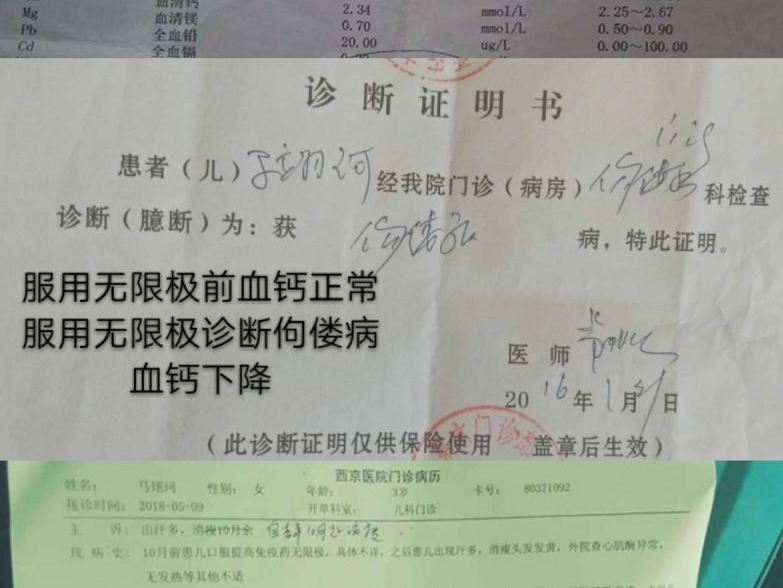 血清钙 2.34 mmol/L 2.25～2.67
Mg 血清镁 0.70 mmol/L 0.50～0.90
Pb 全血铅 20.00 ug/L 0.00～100.00
Cd 全血镉
诊断证明书
患者（儿） 经我院门诊（病房） 科检查
诊断（臆断）为：获 病，特此证明。
服用无限极前血钙正常
服用无限极诊断佝偻病
血钙下降
医 师
2016年1月21日
（此诊断证明仅供保险使用 盖章后生效）
西京医院门诊病历
姓名： 马翊珂 性别： 女 年龄： 3岁 卡号： 80371092
接诊时间： 2018-05-09 开单科室： 儿科门诊
主 诉： 出汗多，消瘦10月余
现 病 史： 10月前患儿口服提高免疫药无限极，具体不详，之后患儿出现汗多，消瘦头发发黄，外院查心肌酶异常，
无发热等其他不适